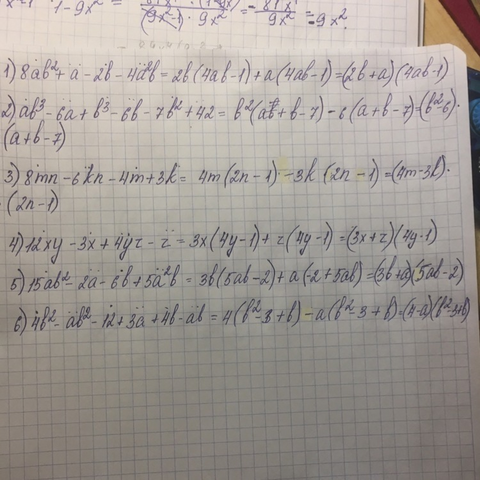 1) 8ab²+a-2b-4a²b=2b(4ab-1)+a(4ab-1)=(2b+a)(4ab-1)
2) ab³-6a+b³-6b-7b²+42=b²(ab+b-7)-6(a+b-7)=(b²-6)·
(a+b-7)
3) 8mn-6kn-4m+3k= 4m(2n-1)-3k(2n-1)=(4m-3k)·
(2n-1)
4) 12xy-3x+4yz-z=3x(4y-1)+z(4y-1)=(3x+z)(4y-1)
5) 15ab²-2a-6b+5a²b=3b(5ab-2)+a(-2+5ab)=(3b+a)(5ab-2)
6) 4b²-ab²-12+3a+4b-ab=4(b²-3+b)-a(b²-3+b)=(4-a)(b²-3+b)